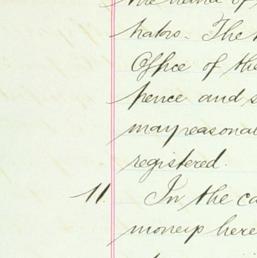 the hand of
hators. The
Office of the
pence and s
may reasona
registered.
11. In the ca
moneys here